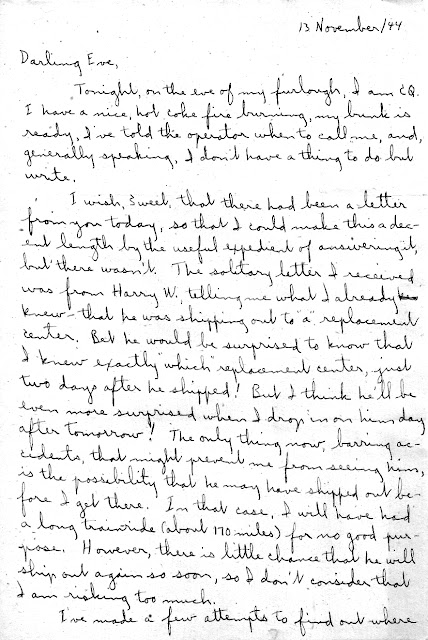 13 November/44
Darling Eve,
Tonight, on the eve of my furlough, I am CQ.
I have a nice, hot coke fire burning, my bunk is
ready, I've told the operator when to call me, and,
generally speaking, I don't have a thing to do but
write.
I wish, Sweet, that there had been a letter
from you today, so that I could make this a dec-
ent length by the useful expedient of answering it,
but there wasn't. The solitary letter I received
was from Harry W., telling me what I already
knew - that he was shipping out to "a" replacement
center. Bet he would be surprised to know that
I knew exactly "which" replacement center, just
two days after he shipped! But I think he'll be
even more surprised when I drop in on him day
after tomorrow! The only thing now, barring ac-
cidents, that might prevent me from seeing him,
is the possibility that he may have shipped out be-
fore I get there. In that case, I will have had
a long trainride (about 170 miles) for no good pur-
pose. However, there is little chance that he will
ship out again so soon, so I don't consider that
I am risking too much.
I've made a few attempts to find out where